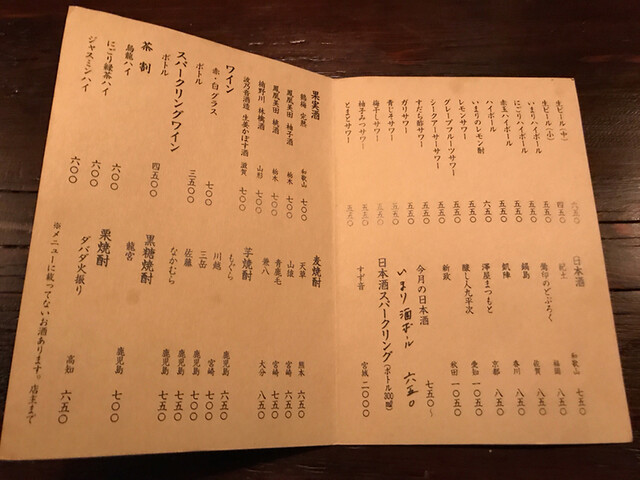 生ビール(中) 六五〇
生ビール(小) 四五〇
いまりハイボール 五五〇
にごりハイボール 五五〇
赤玉ハイボール 五五〇
ハイボール 六五〇
いまりのレモン酎 五五〇
レモンサワー 五五〇
グレープフルーツサワー 五五〇
シークワーサーサワー 五五〇
すだち酢サワー 五五〇
ガリサワー 五五〇
青じそサワー 五五〇
梅干しサワー 五五〇
柚子みつサワー 五五〇
とまとサワー 五五〇
日本酒
紀土 和歌山 七五〇
福岡 八五〇
鍋島 佐賀 八五〇
凱陣 香川 八五〇
澤屋まつもと 京都 八五〇
醸し人九平次 愛知 一〇五〇
新政 秋田 一〇五〇
今月の日本酒 七五〇~
いまり酒ボール 六五〇
日本酒スパークリング(ボトル300㎖)
すず音 宮城 二〇〇〇
果実酒
鶴梅 完熟 和歌山 七〇〇
鳳凰美田 柚子酒 栃木 七〇〇
鳳凰美田 桃酒 栃木 七〇〇
楯野川 林檎酒 山形 七〇〇
波乃音酒造 生姜かぼす酒 滋賀 七〇〇
ワイン
赤・白 グラス 七〇〇
ボトル 三五〇〇
スパークリングワイン
ボトル 四五〇〇
茶割
烏龍ハイ 六〇〇
にごり緑茶ハイ 六〇〇
ジャスミンハイ 六〇〇
麦焼酎
天草 熊本 六五〇
山猿 宮崎 六五〇
青鹿毛 宮崎 八五〇
兼八 大分 八五〇
芋焼酎
もぐら 鹿児島 六五〇
川越 宮崎 七〇〇
三岳 鹿児島 七〇〇
佐藤 鹿児島 七五〇
なかむら 鹿児島 七五〇
黒糖焼酎
龍宮 鹿児島 七〇〇
栗焼酎
ダバダ火振り 高知 六五〇
※メニューに載ってないお酒あります。店主まで